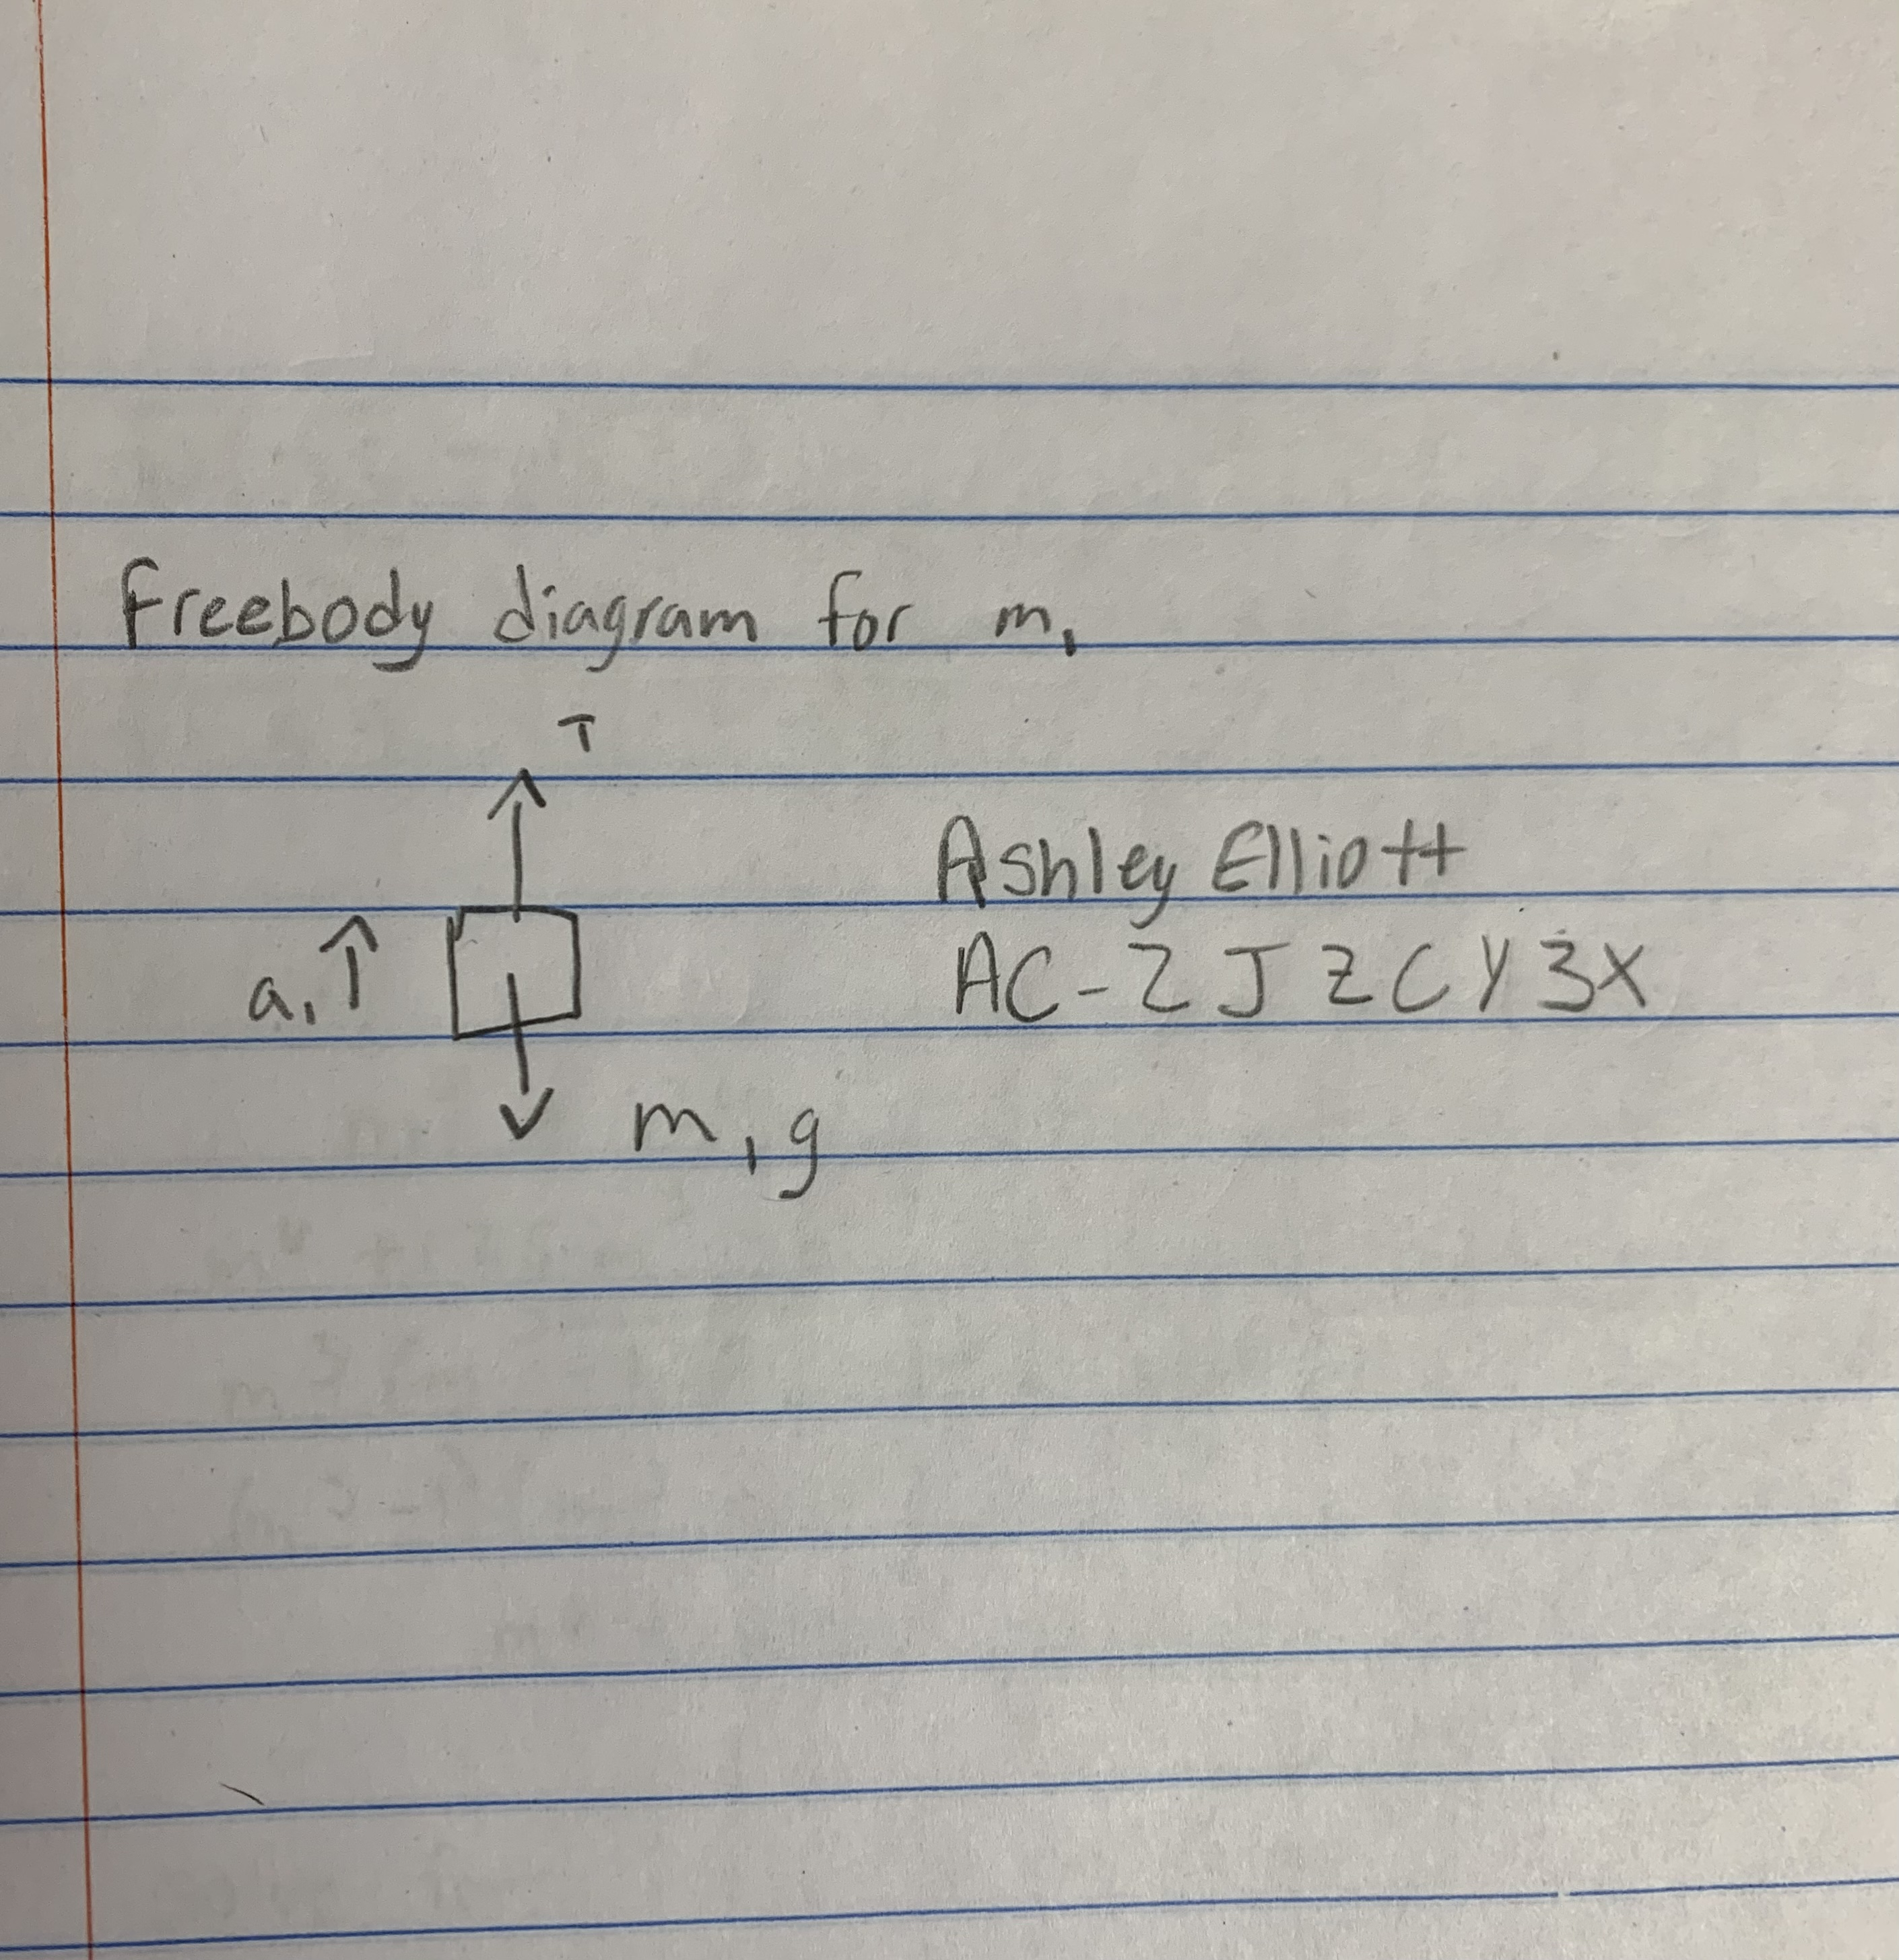 Freebody diagram for m₁
T
Ashley Elliott
a₁
AC-2JZCY3X
m₁g